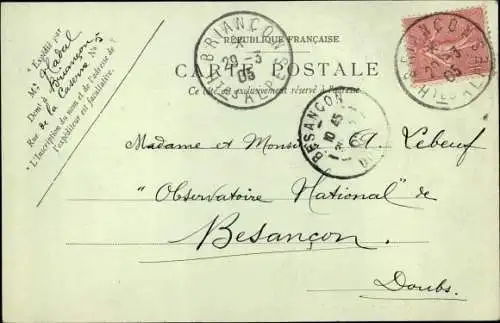 RÉPUBLIQUE FRANÇAISE
CARTE POSTALE
Ce côté est exclusivement réservé à l'adresse
BRIANÇON
29-3
05
HTES ALPES
BRIANÇON
05
HTES ALPES
BESANÇON
10 45
Madame et Monsieur A. Lebeuf
"Observatoire National" de
Besançon.
Doubs.
Expédié par
M. Nadal
Dom. à Briançon
Rue de la Caserne N° 5
"L'Inscription du nom et de l'adresse de
l'expéditeur est facultative."